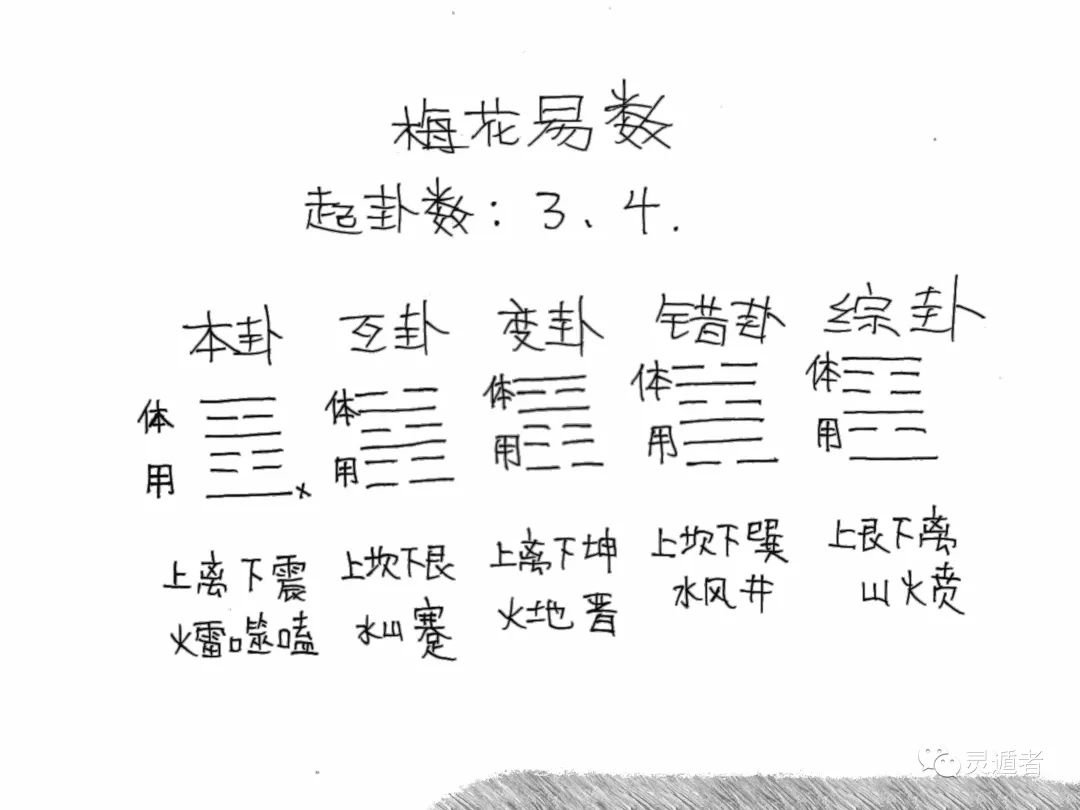 梅花易数
起卦数：3、4.
本卦 互卦 变卦 错卦 综卦
体 体 体 体 体
用 用 用 用 用
x
上离下震 上坎下艮 上离下坤 上坎下巽 上艮下离
火雷噬嗑 水山蹇 火地晋 水风井 山火贲
灵遁者